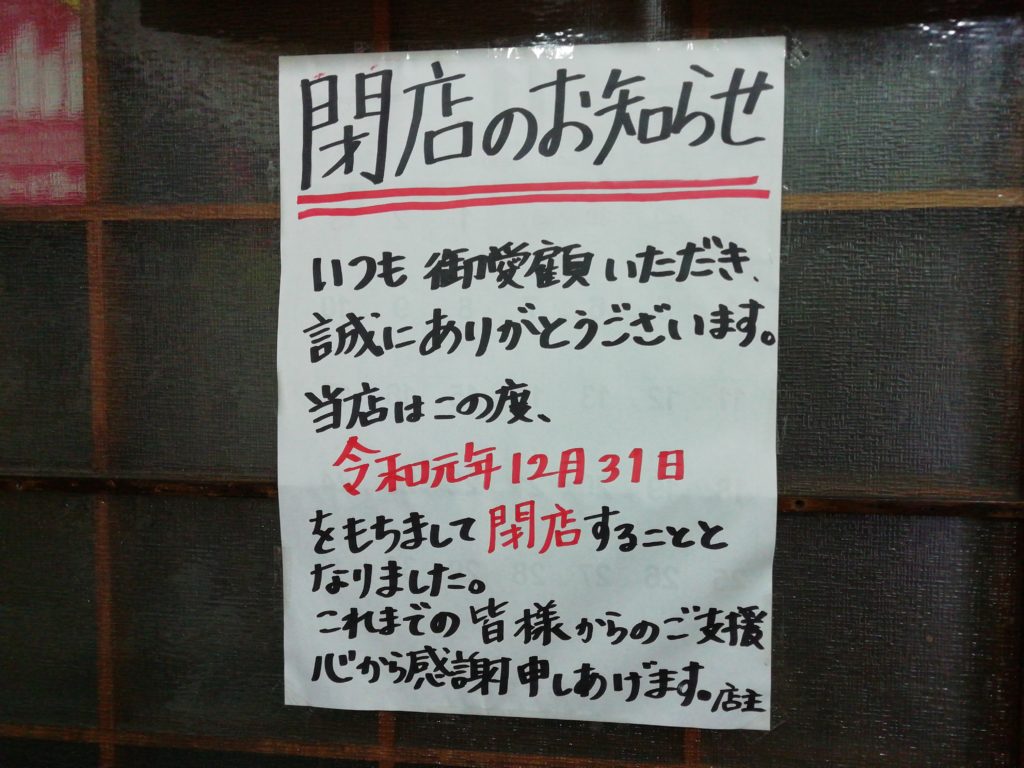 閉店のお知らせ
いつも御愛顧いただき、
誠にありがとうございます。
当店はこの度、
令和元年12月31日
をもちまして閉店することと
なりました。
これまでの皆様からのご支援
心から感謝申しあげます。店主